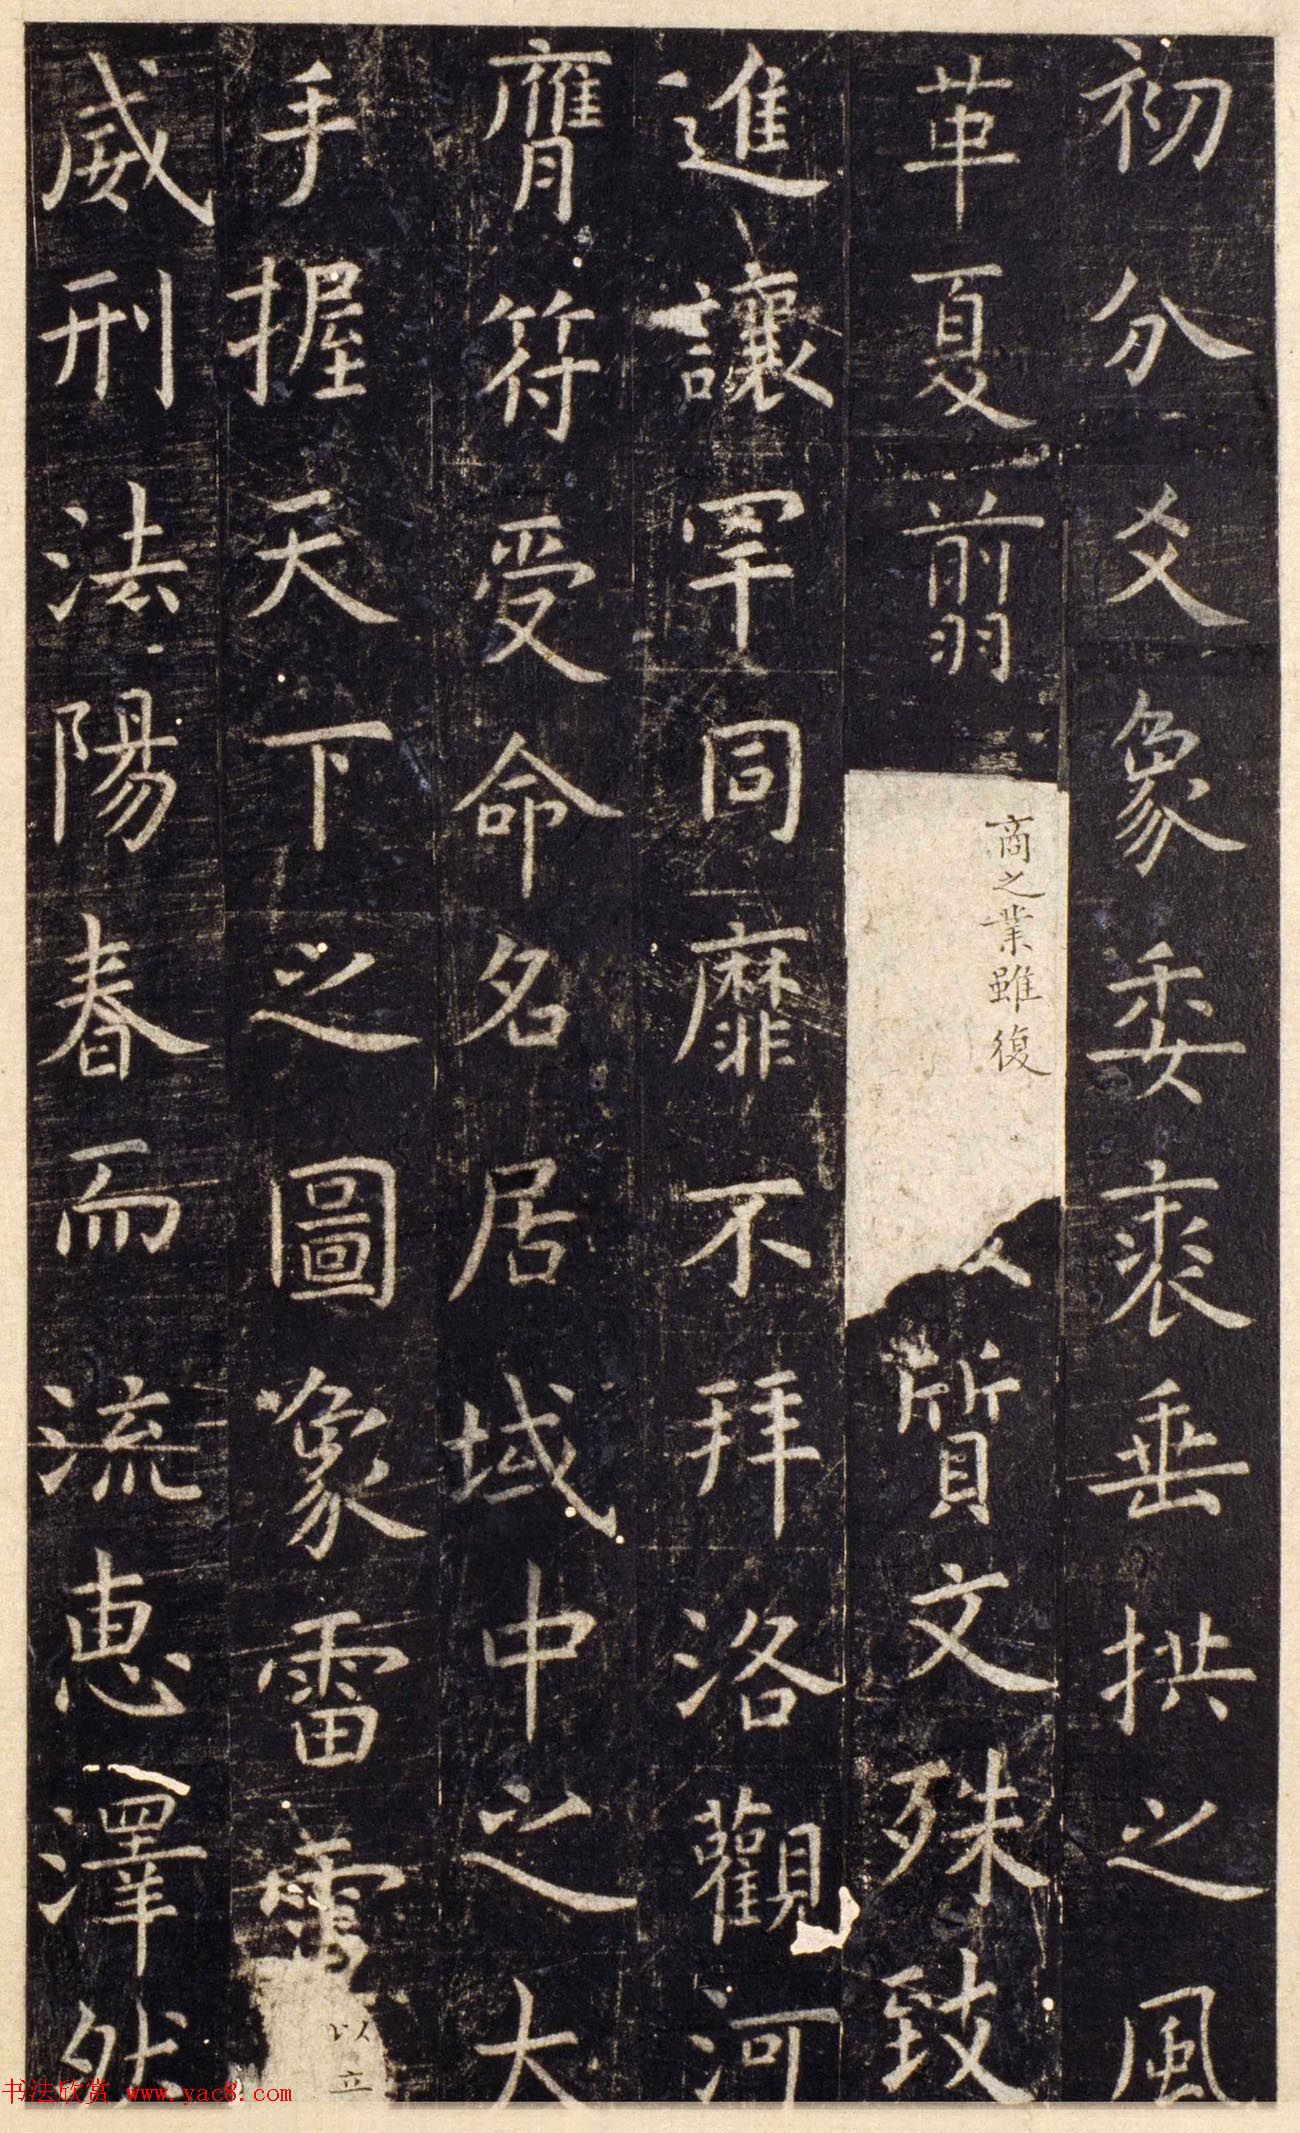 初分爻象委裘垂拱之風
革夏翦商之業雖復質文殊致
進讓罕同靡不拜洛觀河
膺符受命名居域中之大
手握天下之圖象雷電以立
威刑法陽春而流惠澤然
书法欣赏 www.yac8.com